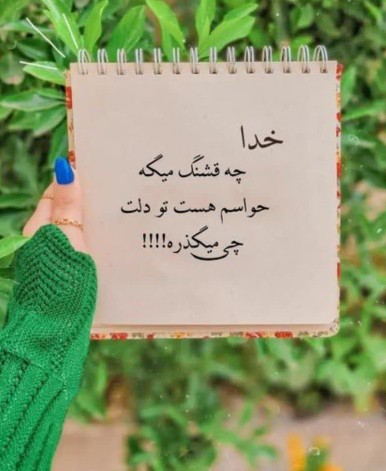 خدا
چه قشنگ میگه
حواسم هست تو دلت
چی میگذره!!!!